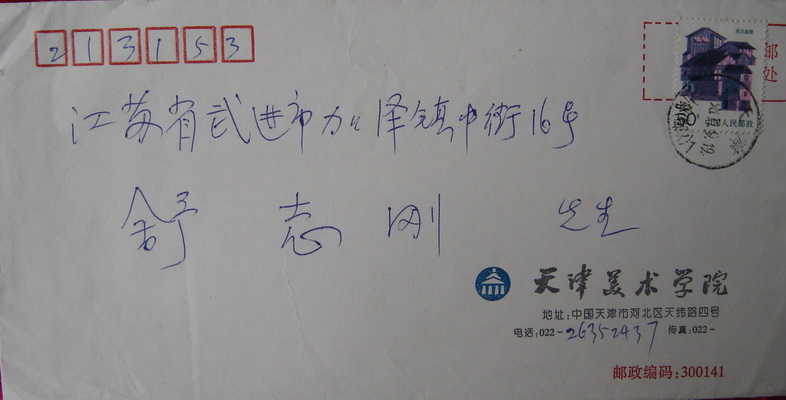 213153
邮
处
中国人民邮政
江苏省武进市加泽镇中街16号
舒志刚 先生
天津美术学院
地址:中国天津市河北区天纬路四号
电话:022-26352437 传真:022-
邮政编码:300141